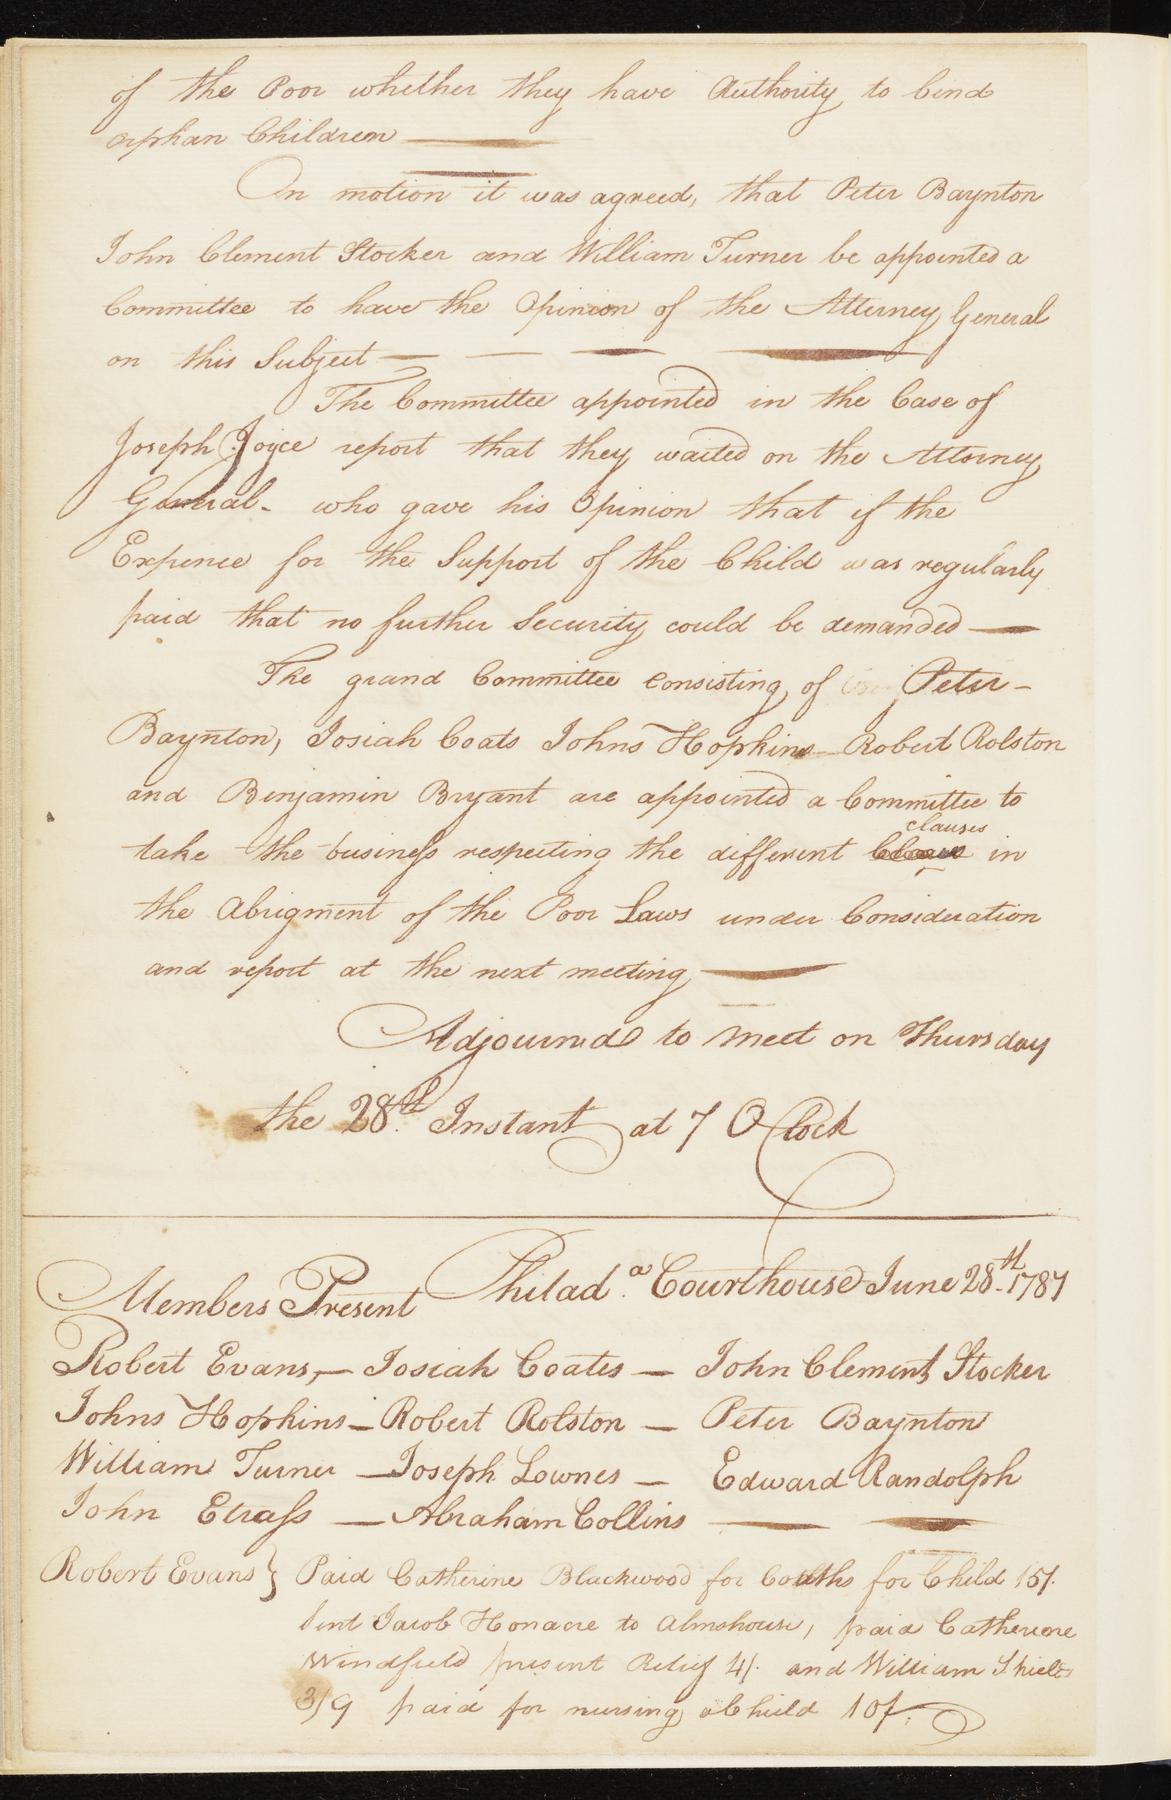 of the Poor whether they have Authority to bind
orphan Children
On motion it was agreed, that Peter Baynton
John Clement Stocker and William Turner be appointed a
Committee to have the Opinion of the Attorney General
on this Subject
The Committee appointed in the Case of
Joseph Joyce report that they waited on the Attorney
General - who gave his Opinion that if the
Expence for the Support of the Child was regularly
paid that no further Security could be demanded
The grand Committee Consisting of Peter
Baynton, Josiah Coats Johns Hopkins Robert Rolston
and Benjamin Bryant are appointed a Committee to
clauses
take the business respecting the different in
the Abrigment of the Poor Laws under Consideration
and report at the next meeting
Adjournd to meet on Thursday
the 28th Instant at 7 O Clock
Philada. Courthouse June 28th. 1787
Members Present
Robert Evans, — Josiah Coates — John Clement Stocker
Johns Hopkins — Robert Rolston — Peter Baynton
William Turner — Joseph Lownes — Edward Randolph
John — Abraham Collins
Robert Evans } Paid Catherine Blackwood for for Child 15/.
Sent Jacob Honacre to Almshouse, paid Catherine
Windfield present Relief 4/. and William Shields
3/9 paid for nursing a Child 10/.